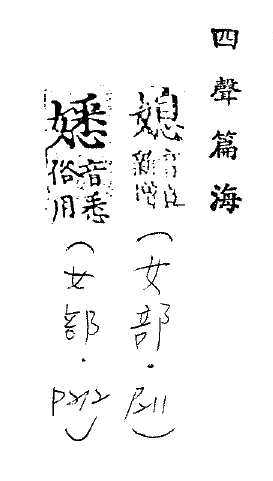 四聲篇海
媳 音 新增 (女部.P211)
音悉俗用 (女部.P212)